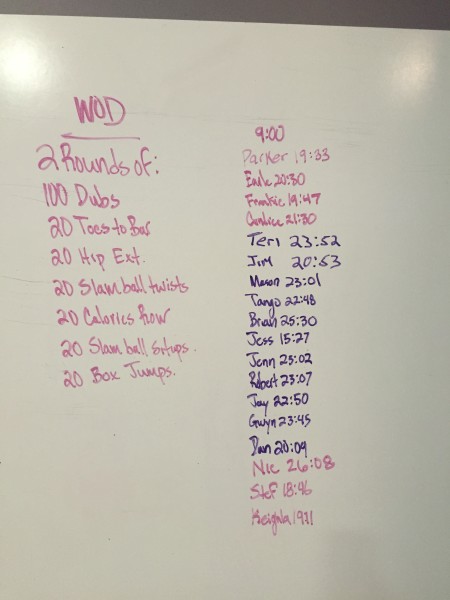 WOD
2 Rounds of:
100 Dubs
20 Toes to Bar
20 Hip Ext.
20 Slamball twists
20 Calories Row
20 Slamball Situps.
20 Box Jumps.
9:00
Parker 19:33
Earle 20:30
Frankie 19:47
Candice 21:30
Teri 23:52
Jim 20:53
Mason 23:01
Tango 22:48
Brian 25:30
Jess 15:27
Jenn 25:02
Robert 23:07
Jay 22:50
Gwyn 23:45
Dan 20:09
Nic 26:08
Stef 18:46